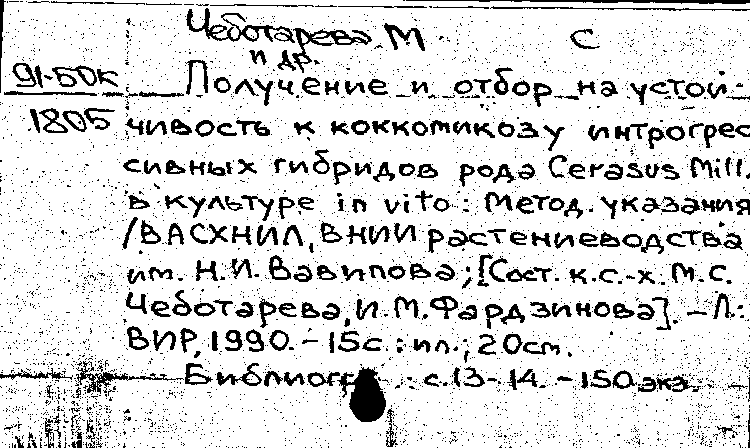 Чеботарева М С
и др.
91-50к Получение и отбор на устой-
1805 чивость к коккомикозу интрогрес
сивных гибридов рода Cerasus Mill.
в культуре in vito: Метод. указания
/ВАСХНИЛ, ВНИИ растениеводства
им. Н.И. Вавилова; [Сост. к.с.-х. М.С.
Чеботарева, И.М. Фардзинова]. - Л.:
ВИР, 1990. - 15с.: ил.; 20см.
Библиогр.: с.13-14. - 150экз.